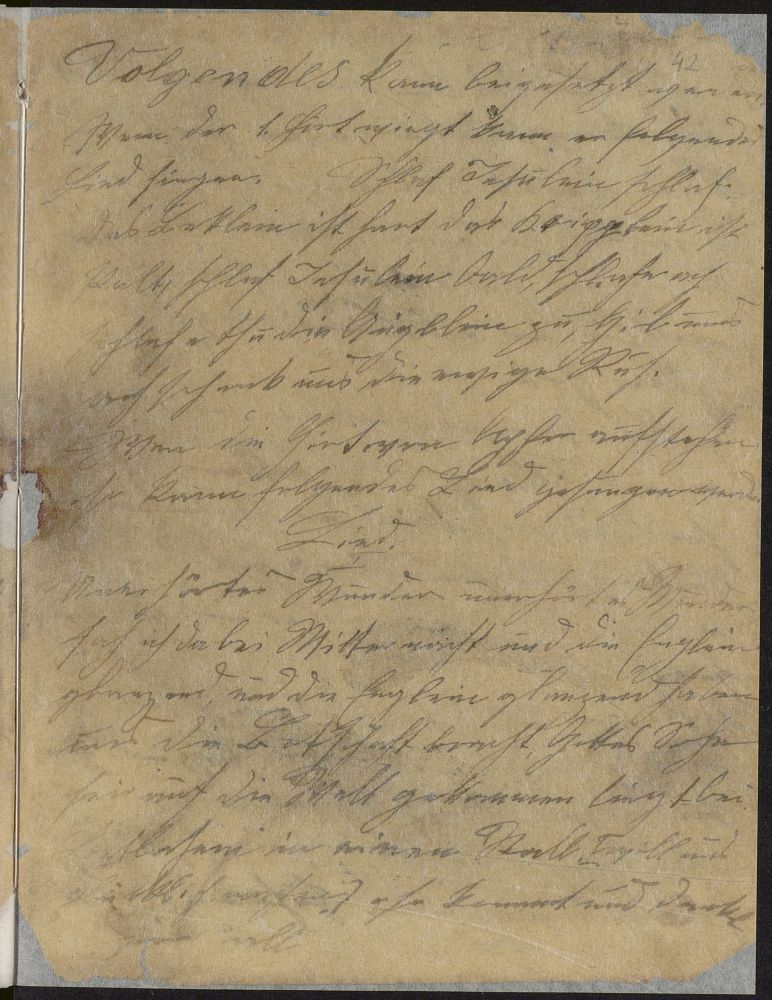 42
Volgendes kann beigesetzt werden
Wenn der 1. Hirt wiegt kann er folgendes
Lied singen. Schlaf Jesulein schlaf.
das Bettlein ist hart das Kripplein ist
kalt, schlaf Jesulein bald, schlafe ach
schlafe thu die Äuglein zu, gib uns
ach schenk uns die ewige Ruh.
Wen die Hirten vom aufstehen
so kann folgendes Lied gesungen werden
Lied.
Unerhörtes Wunder unerhörtes Wunder
sah ich da bei Mitternacht und die Englein
glanzend, und die Englein glanzend haben
uns die Botschaft bracht, Gottes Sohn
sei auf die Welt gekommen liegt bei
Bethlehem in einen Stall, will uns
kommt und